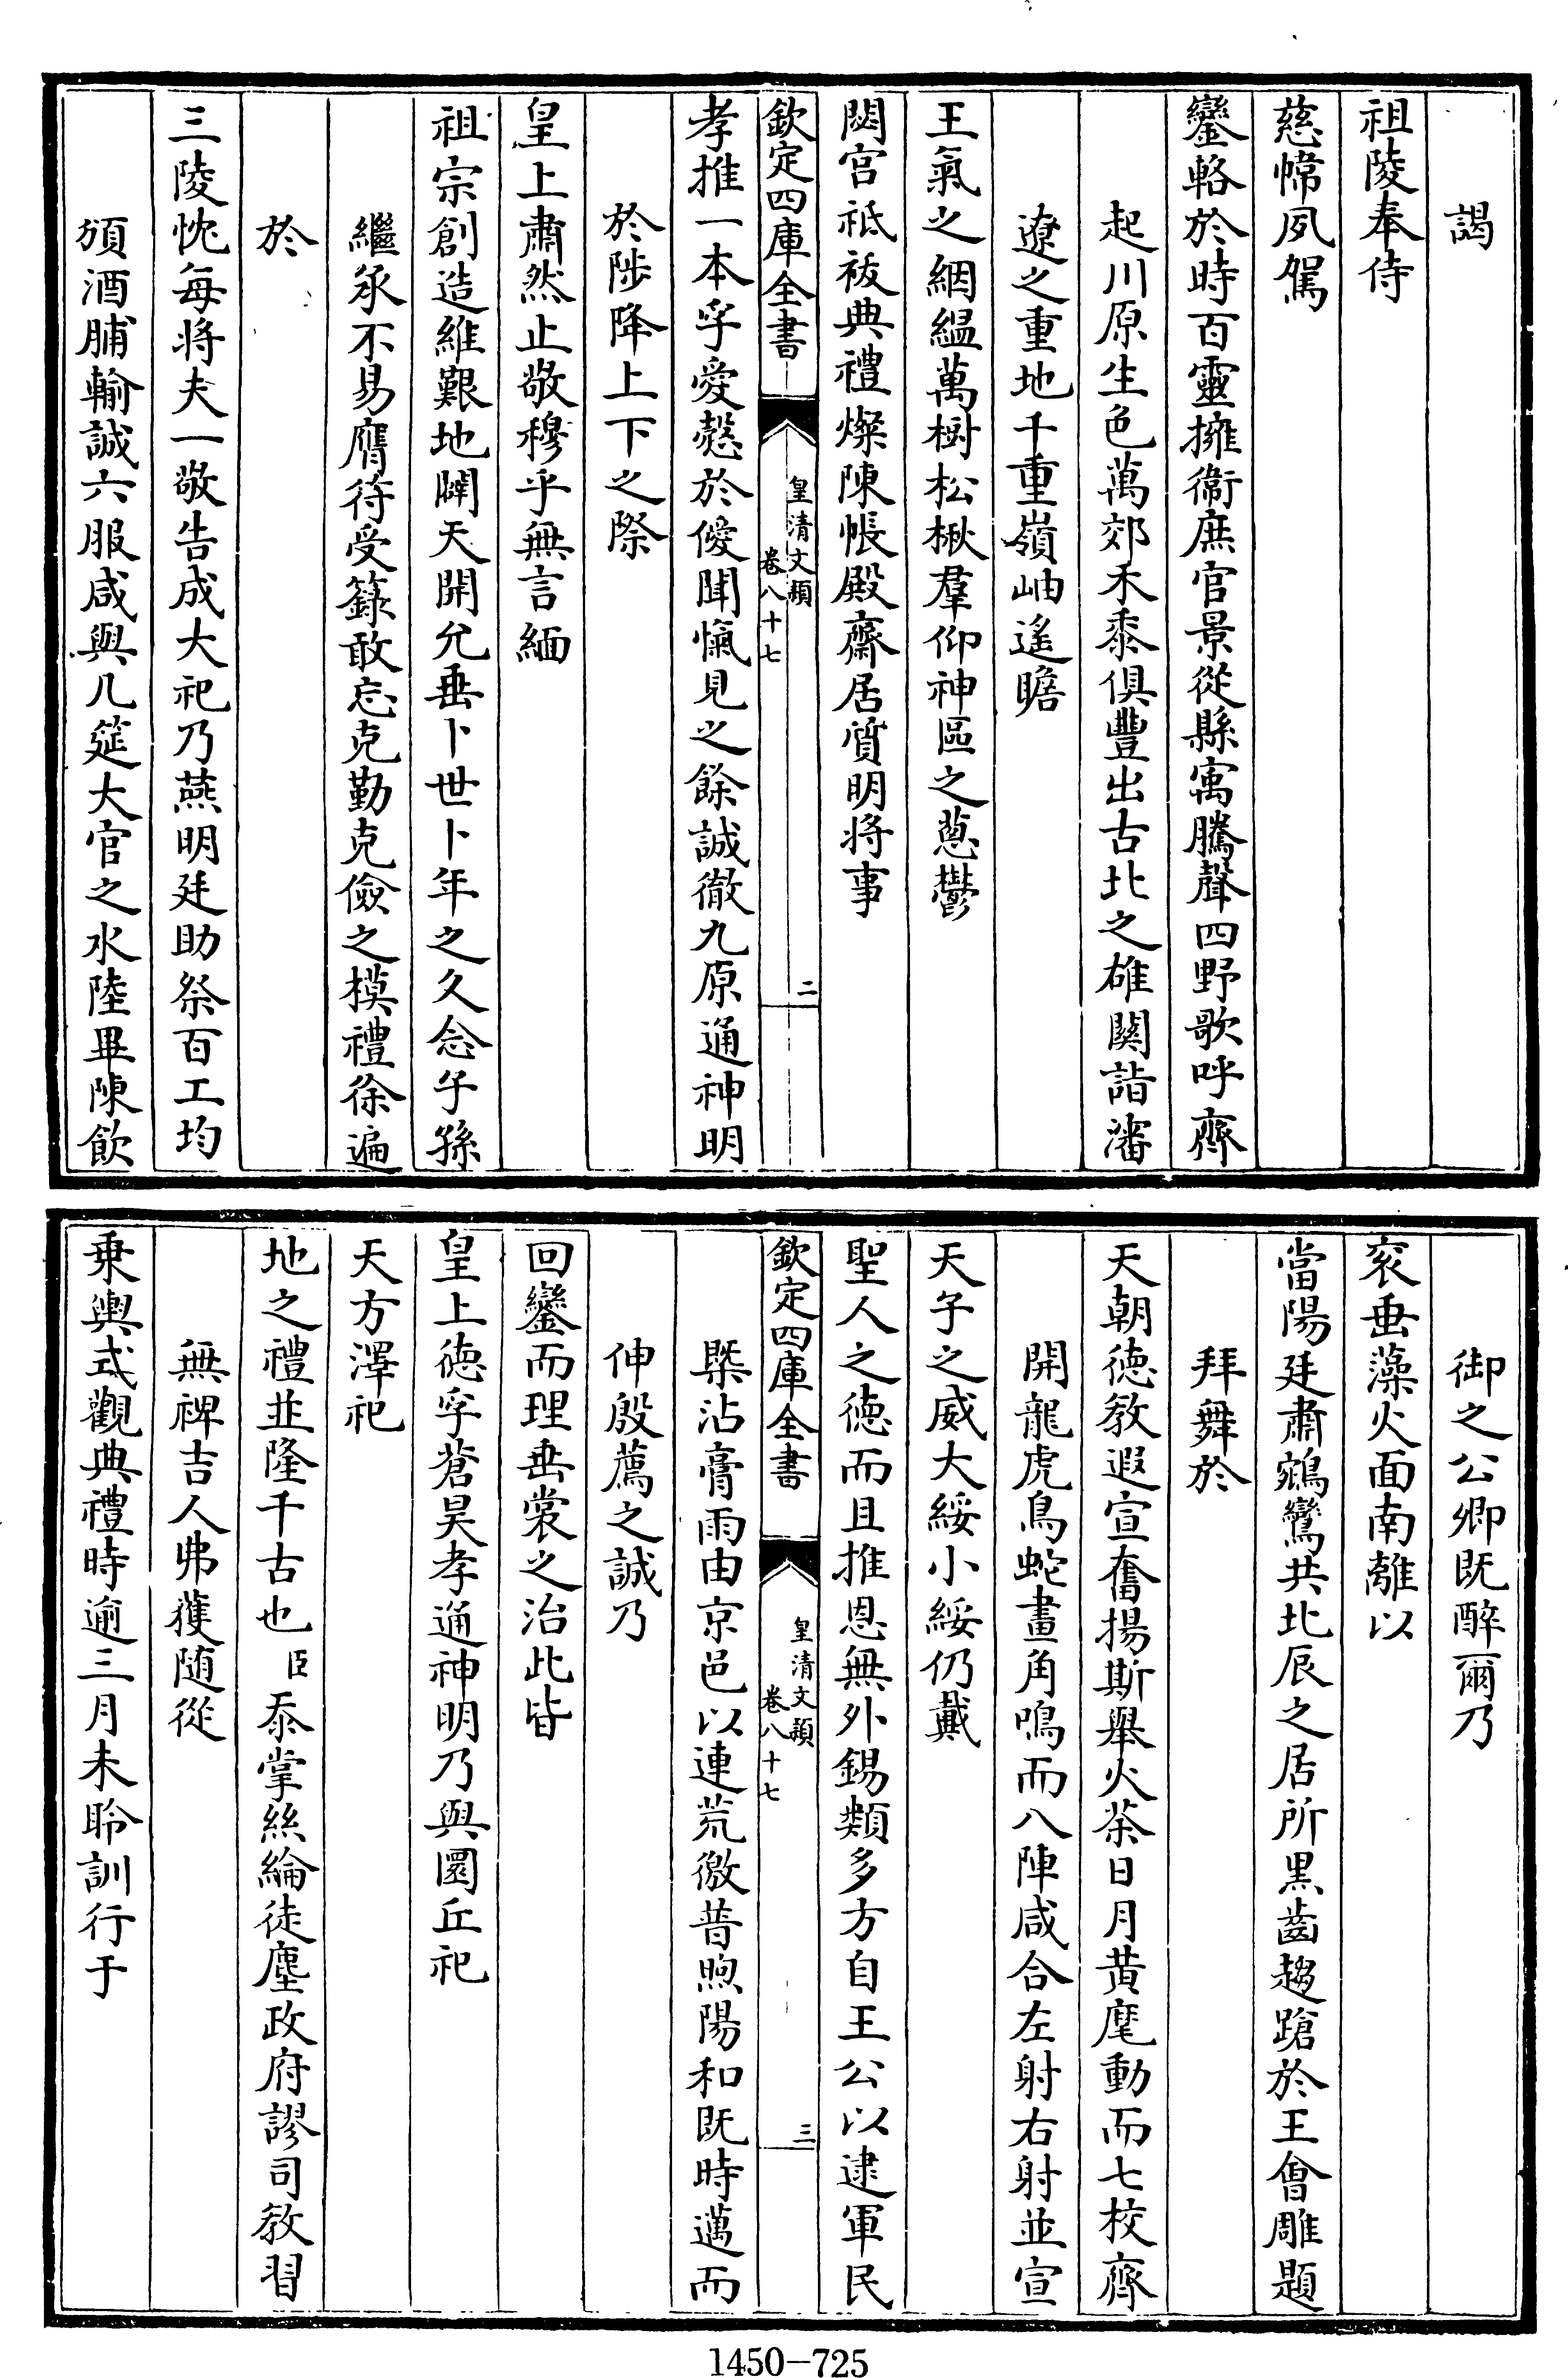 謁
祖陵奉侍
慈幃夙駕
鑾輅於時百靈擁衞庶官景從縣寓騰聲四野歌呼齊
起川原生色萬郊禾黍俱豐出古北之雄關詣瀋
遼之重地千重嶺岫遙瞻
王氣之絪縕萬樹松楸羣仰神區之葱鬱
閟宮祗祓典禮燦陳帳殿齋居質明将事
欽定四庫全書
皇清文類
卷八十七
二
孝推一本孚愛慤於僾聞愾見之餘誠徹九原通神明
於陟降上下之際
皇上肅然止敬穆乎無言緬
祖宗創造維艱地闢天開允垂卜世卜年之久念子孫
繼承不易膺符受籙敢忘克勤克儉之模禮徐遍
於
三陵忱每将夫一敬告成大祀乃燕明廷助祭百工均
頒酒脯輸誠六服咸與几筵大官之水陸畢陳飲
御之公卿既醉爾乃
衮垂藻火面南離以
當陽廷肅鵷鸞共北辰之居所黒齒趨蹌於王會雕題
拜舞於
天朝徳教遐宣奮揚斯舉火荼日月黄麾動而七校齊
開龍虎鳥蛇畫角鳴而八陣咸合左射右射並宣
天子之威大綏小綏仍戴
聖人之徳而且推恩無外錫類多方自王公以逮軍民
槩沾膏雨由京邑以連荒徼普煦陽和既時邁而
伸殷薦之誠乃
欽定四庫全書
皇清文類
卷八十七
三
回鑾而理垂裳之治此皆
皇上徳孚蒼昊孝通神明乃與圜丘祀
天方澤祀
地之禮並隆千古也臣忝掌絲綸徒塵政府謬司教習
無裨吉人弗獲随從
乗輿式觀典禮時逾三月未聆訓行于
1450-725